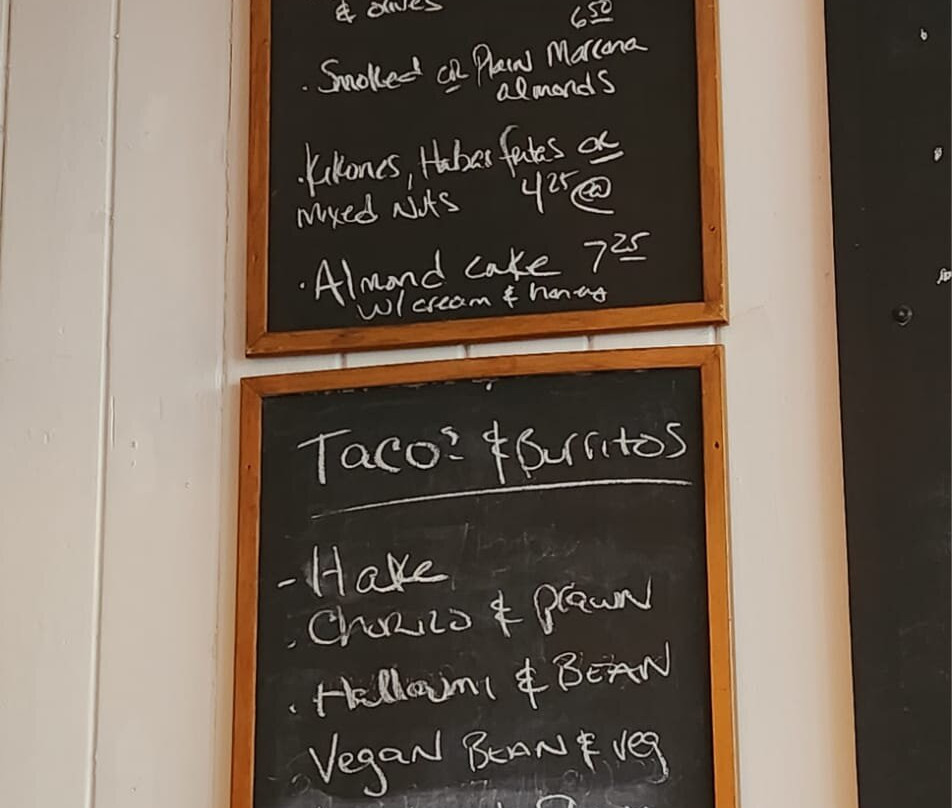 & olives 6 50
· Smoked or Plain Marcona
almonds
· Kikones, Habas fritas or
Mixed Nuts 4 25 @
· Almond cake 7 25
w/ cream & honey
Taco's & Burritos
- Hake
· Chorizo & prawn
· Halloumi & BEAN
Vegan BEAN & veg